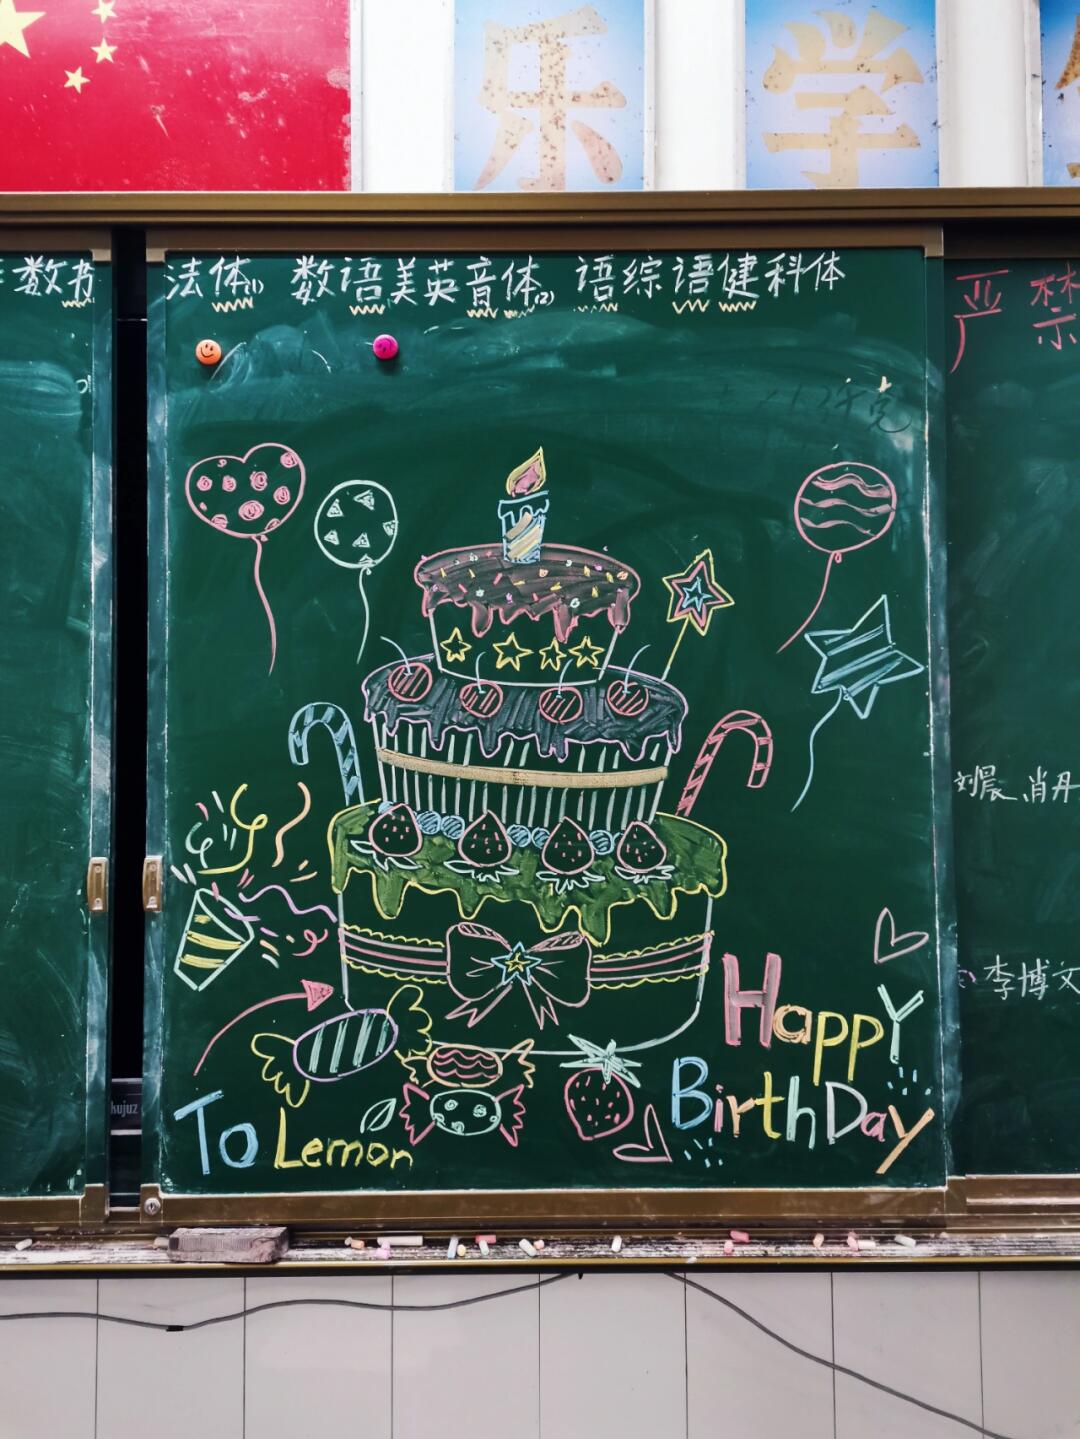 乐 学
数书
法体(1) 数语美英音体(2) 语综语健科体
严禁
千克
刘晨 肖丹
李博文
Happy
BirthDay
To Lemon